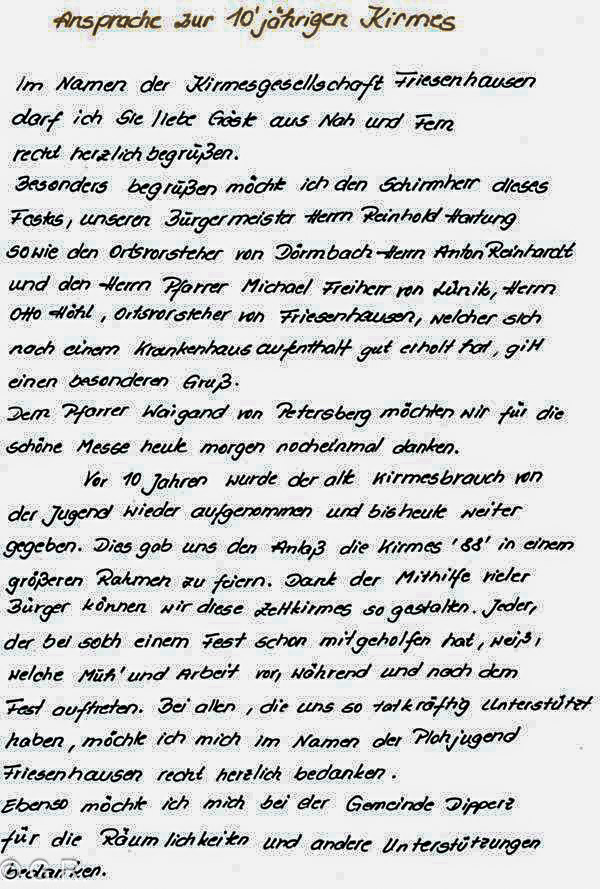 Ansprache zur 10'jährigen Kirmes
Im Namen der Kirmesgesellschaft Friesenhausen
darf ich Sie liebe Gäste aus Nah und Fern
recht herzlich begrüßen.
Besonders begrüßen möchte ich den Schirmherr dieses
Festes, unseren Bürgermeister Herrn Reinhold Hartung
sowie den Ortsvorsteher von Dörmbach Herrn Anton Reinhardt
und den Herrn Pfarrer Michael Freiherr von Lünik, Herrn
Otto Höhl, Ortsvorsteher von Friesenhausen, welcher sich
nach einem Krankenhausaufenthalt gut erholt hat, gilt
einen besonderen Gruß.
Dem Pfarrer Waigand von Petersberg möchten wir für die
schöne Messe heute morgen nocheinmal danken.
Vor 10 Jahren wurde der alte Kirmesbrauch von
der Jugend wieder aufgenommen und bis heute weiter
gegeben. Dies gab uns den Anlaß die Kirmes '88' in einem
größeren Rahmen zu feiern. Dank der Mithilfe vieler
Bürger können wir diese Zeltkirmes so gestalten. Jeder,
der bei solch einem Fest schon mitgeholfen hat, weiß,
welche Müh' und Arbeit vor, während und nach dem
Fest auftreten. Bei allen, die uns so tatkräftig unterstützt
haben, möchte ich mich im Namen der Plohjugend
Friesenhausen recht herzlich bedanken.
Ebenso möchte ich mich bei der Gemeinde Dipperz
für die Räumlichkeiten und andere Unterstützungen
bedanken.